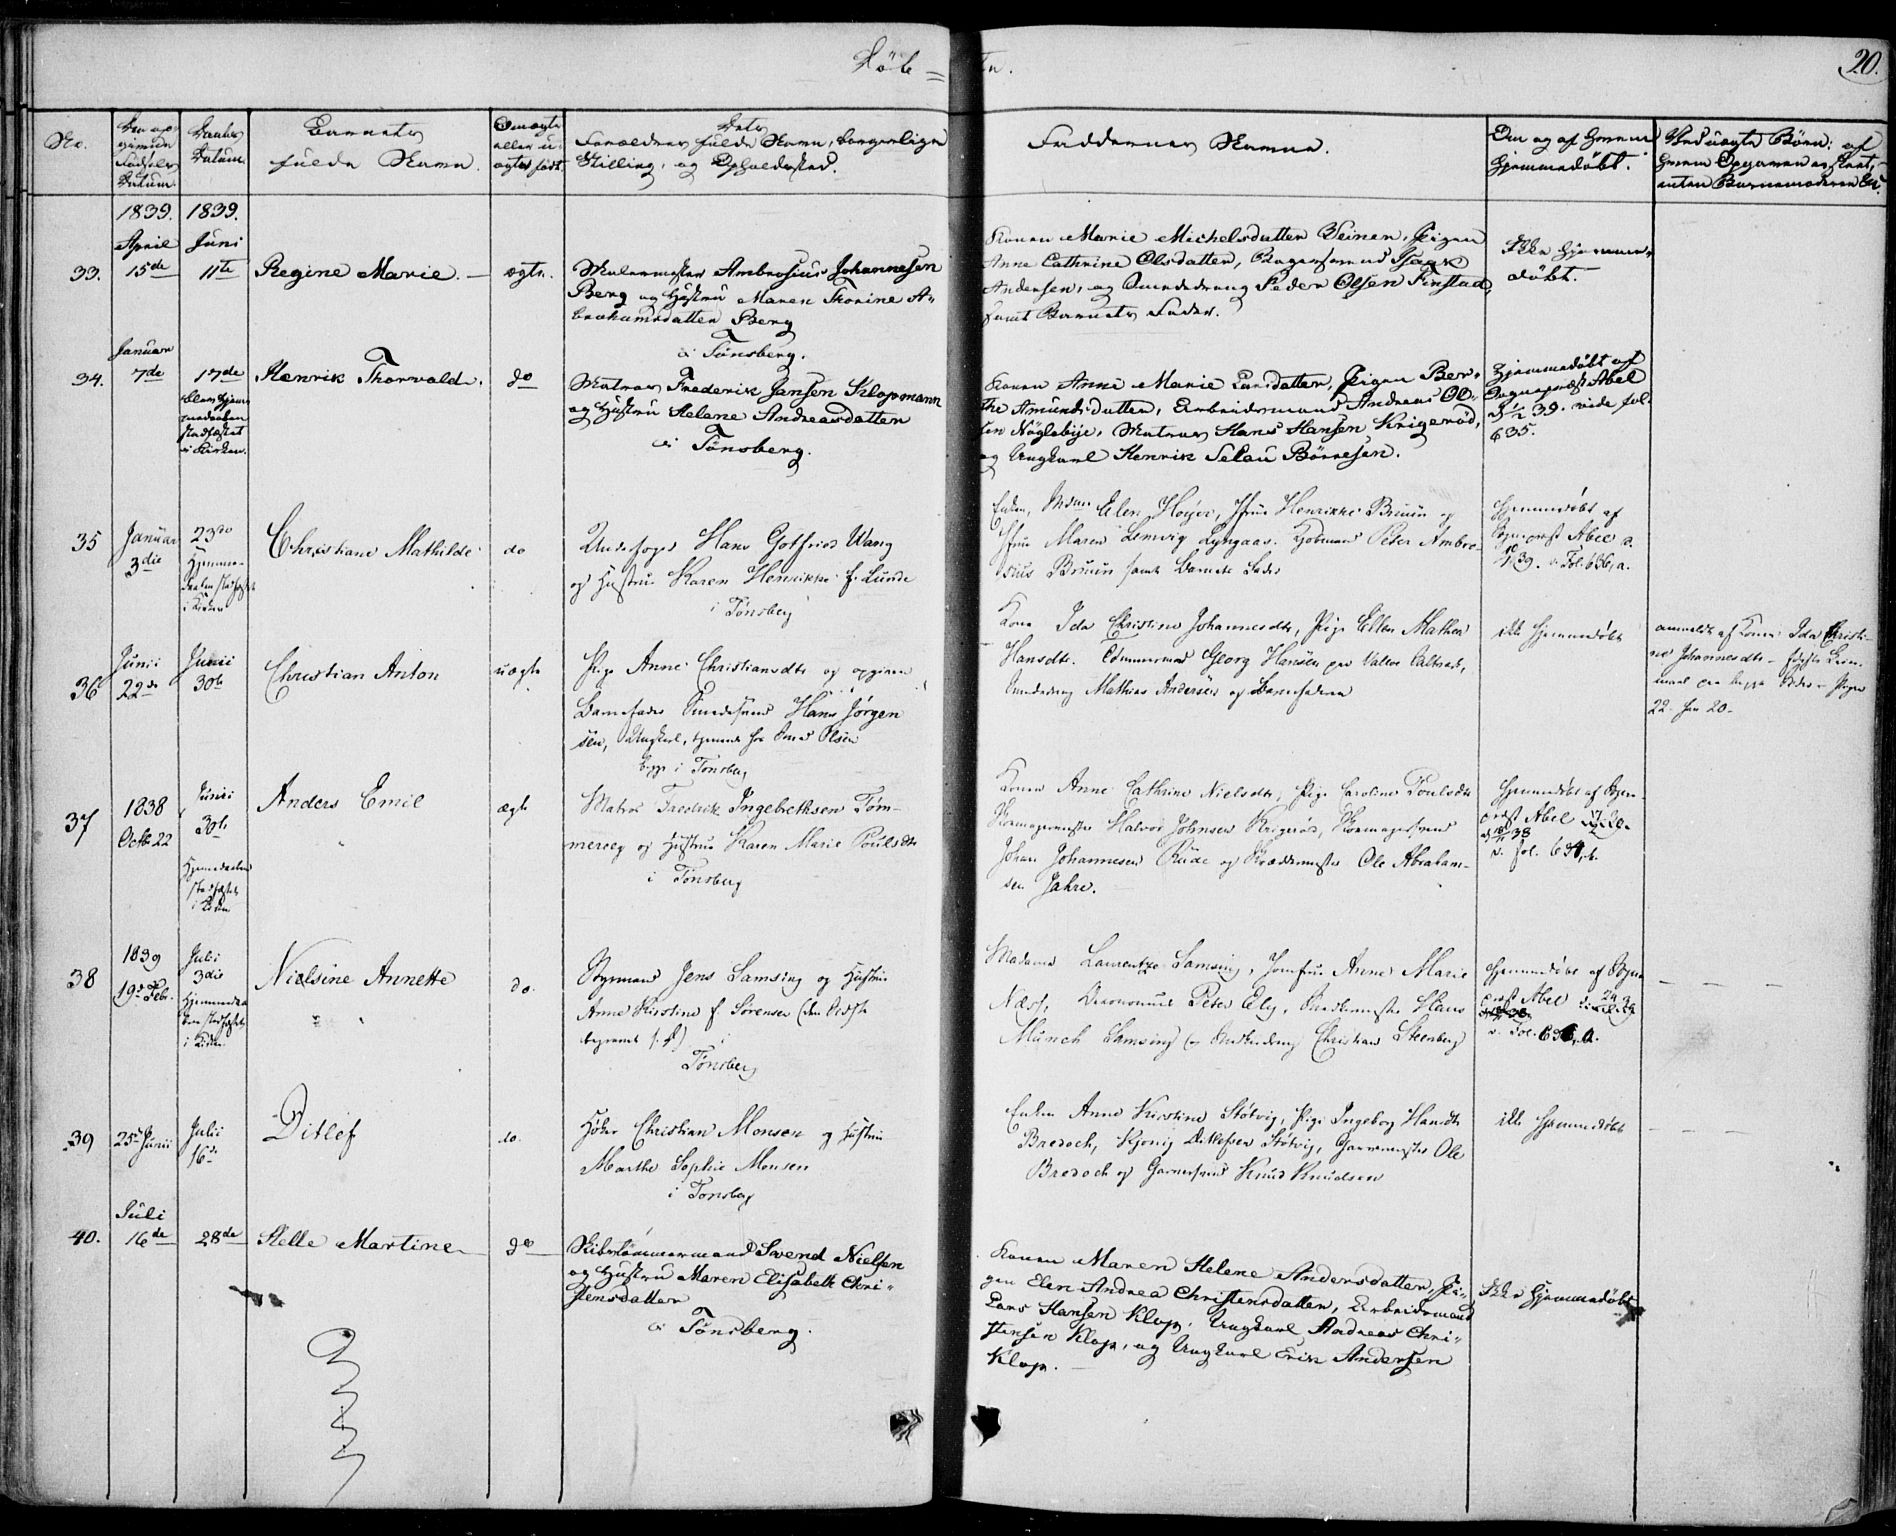 Døbte.
20.
No.
Den op-
givende
Fødsels
Datum.
Daabs
Datum.
Barnets
fulde Navn.
Om ægte
eller u-
ægte født.
Dets
Forældres fulde Navn, borgerlige
Stilling, og Opholdssted.
Faddernes Navne.
Om og af hvem
hjemmedøbt.
Ved uægte Børn: af
hvem Opgaven er skeet,
enten Barnemoderen &c.
1839. 1839.
April Juni
33. 15de 11te Regine Marie. ægte.
Malermester Ambrosius Johannesen
Berg og Hustru Maren Thorine A-
brahamsdatter Berg
i Tønsberg.
Konen Marie Michelsdatter Veiner, Pigen
Anne Cathrine Olsdatter, Bagersvend Isaak
Andersen, og Smededreng Peder Olsen Finstad,
samt Barnets Fader.
Ikke hjemme-
døbt.
Januar
34. 7de 17de Henrik Thorvald. do
blev hjem-
medaaben
stadfæstet
i Kirken.
Matros Frederik Jansen Klopmann
og Hustru Helene Andreasdatter
i Tønsberg.
Konen Anne Marie Larsdatter, Pigen Ber-
the Amundsdatter, Arbeidsmand Andreas Ol-
sen Nøglebye, Matros Hans Hansen Krigerød,
og Ungkarl Henrik Selau Børresen.
Hjemmedøbt af
Sognepræst Abel
39. vide fol.
635.
35 Januar 3die 23de Christiane Mathilde do
Hjemme-
daaben stadfæstet
i Kirken
Underfoged Hans Gotfried Wang
og Hustru Karen Henrikke f. Lunde
i Tønsberg
Enken, Mdme Elen Høyer, Jfrue Henrikke Bruun og
Jfrue Maren Lemvig Lyngaas. Kjøbmand Peter Ambro-
sius Bruun samt Barnets Fader
Hjemmedøbt af
Sognepræst Abel d.
39. v. Fol. 636, a.
36 Junii 22de Junii 30te Christian Anton uægte
Pige Anne Christiansdtr og opgiven
Barnefader Smedesvend Hans Jørgen
sen, Ungkarl, tjenende hos Smed Olsen
begge i Tønsberg
Kone Ida Christine Johannesdtr, Pige Ellen Mathea
Hansdtr. Tømmermand Georg Hansen paa Valløe Saltværk,
Smededreng Mathias Andersen og Barnefaderen
ikke hjemmedøbt
anmeldt af Konen Ida Christi-
ne Johannesdtr - første Leier-
maal paa begge Sider - Pigen
22. han 20.
37 1838 Octb 22 Junii 30te Anders Emil ægte
Hjemmedaaben
stadfæstet
i Kirken
Matros Fredrik Ingebrethsen Tøm-
merey og Hustru Karen Marie Poulsdtr
i Tønsberg
Konen Anne Cathrine Nielsdtr, Pige Caroline Poulsdtr
Skomagermester Halvor Johnsen Krigerød, Skomagersvend
Johan Johannesen Rude og Skræddermester Ole Abraham-
sen Jahre.
Hjemmedøbt af Sogne-
præst Abel
38
v. fol. 634, b.
38 1839 19de Febr. Julii 3die Nielsine Annette do.
Hjemmedaa-
ben stadfæstet
i Kirken.
Styrmand Jens Samsing og Hustru
Anne Kirstine f. Sørensen
i
Tønsberg
Madame Laurentze Samsing, Jomfrue Anne Marie
Næss, Oeconomus Peter Ely, Snedkermester Hans
Münch Samsing og Snedkerdreng Christian Steenberg
Hjemmedøbt af Sogne-
præst Abel
v. Fol. 636, a.
39 25de Junii Julii 16de Ditlef do.
Høker Christian Monsen og Hustru
Marthe Sophie Monsen
i Tønsberg
Enken Anne Kirstine Støtvig, Pige Ingeborg Hansdtr
Bredoch, Kjønig Detlefsen Støtvig, Garvermester Ole
Bredoch og Garversvend Knud Knudsen
ikke hjemmedøbt
Juli
40. 16de 28de Helle Martine do
Skibstømmermand Svend Nielsen
og Hustru Maren Elisabeth Chri-
stensdatter
i Tønsberg.
Konen Maren Helene Andersdatter, Pi-
gen Elen Andrea Christensdatter, Arbeidsmand
Lars Hansen Klop, Ungkarl Andreas Chri-
stensen Klop, og Ungkarl Erik Andersen
Klop.
Ikke hjemmedøbt